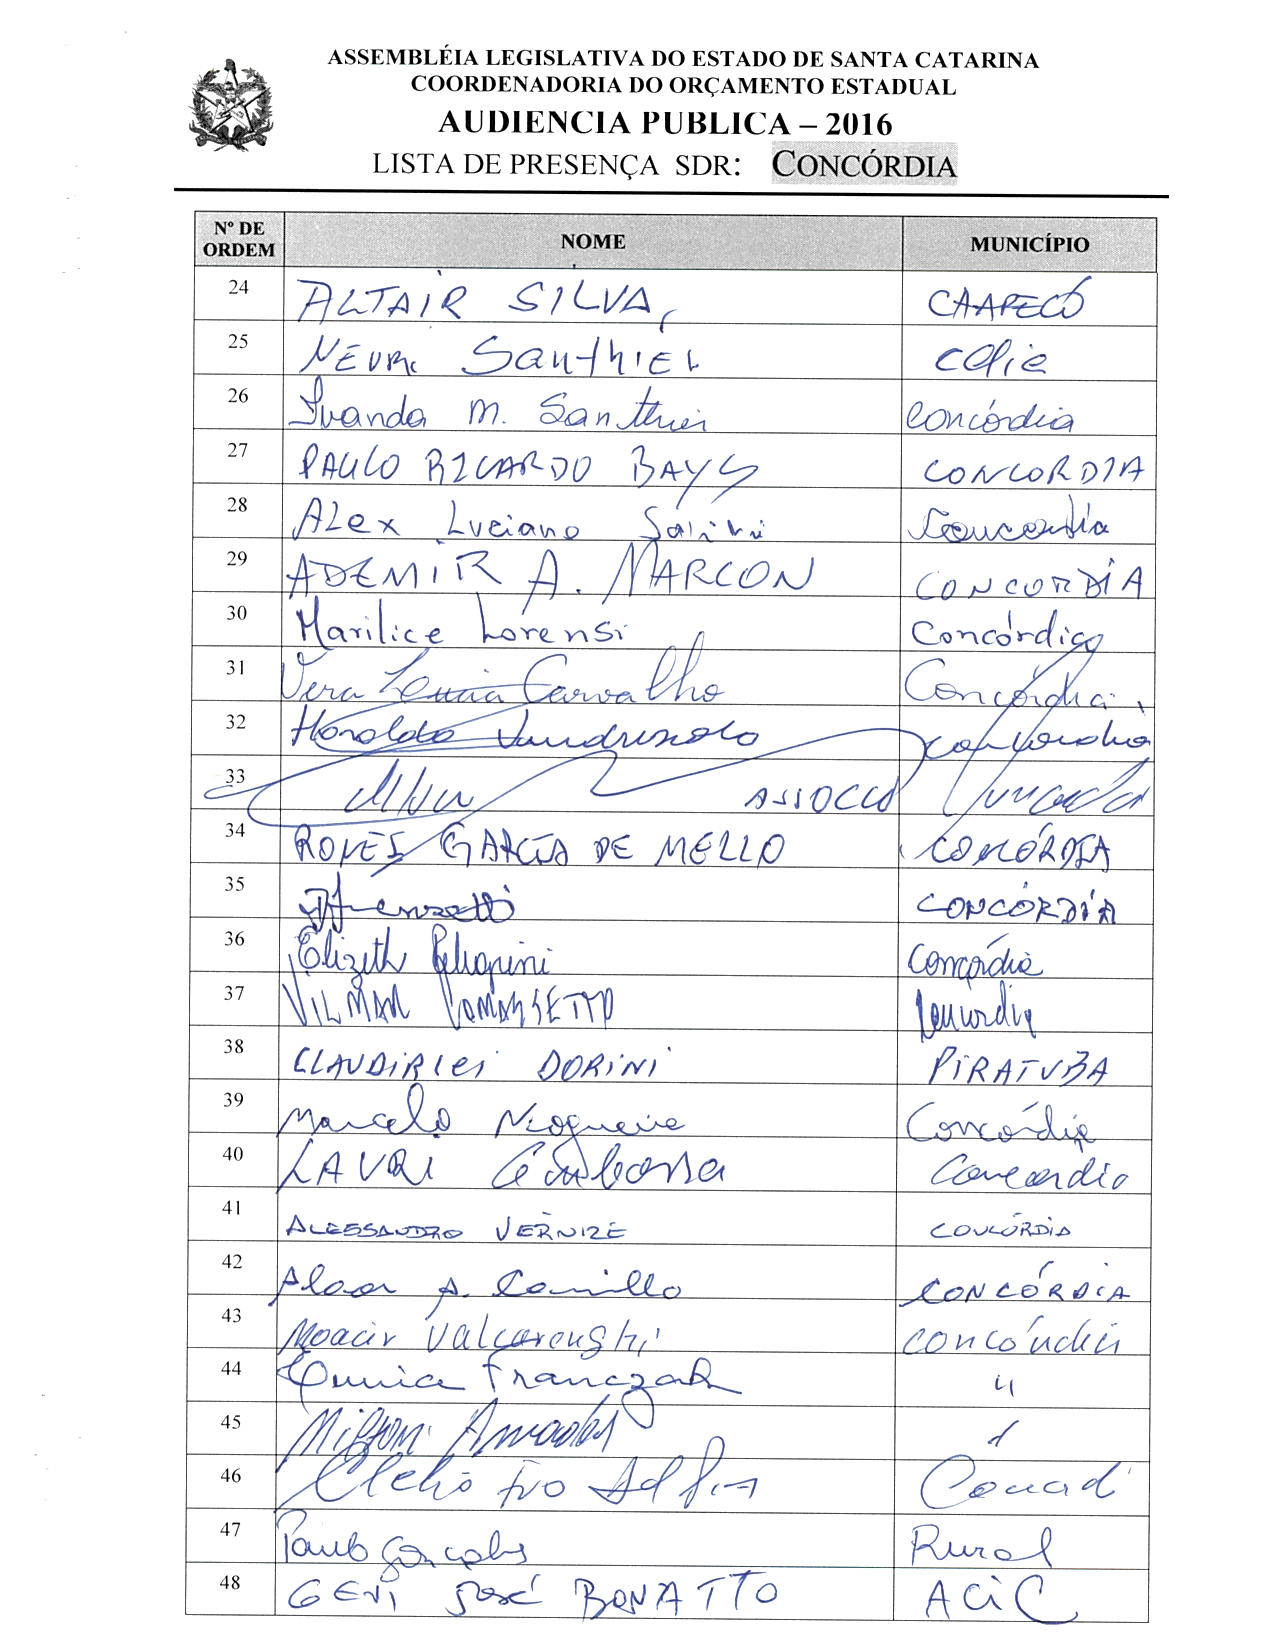 ASSEMBLÉIA LEGISLATIVA DO ESTADO DE SANTA CATARINA
COORDENADORIA DO ORÇAMENTO ESTADUAL
AUDIENCIA PUBLICA – 2016
LISTA DE PRESENÇA SDR: CONCÓRDIA
Nº DE ORDEM NOME MUNICÍPIO
24 ALTAIR SILVA,
25 Santhier
26 Ivanda M. Santhier Concórdia
27 PAULO RICARDO BAYS CONCORDIA
28 ALex Luciano Concordia
29 ADEMIR A. MARCON CONCORDIA
30 Marilice Lorensi Concórdia
31 Vera Lucia Carvalho Concórdia
32 Haroldo Concordia
33
34 GARCIA DE MELLO CONCÓRDIA
35 CONCÓRDIA
36 Elizeth Pelegrini Concórdia
37 VILMAR TOMASSETTO Concordia
38 CLAUDIRLEI DORINI PIRATUBA
39 Marcelo Nogueira Concórdia
40 LAURI Concordia
41 ALESSANDRO VERNIZE CONCÓRDIA
42 A. Camillo CONCÓRDIA
43 Moacir Valcarenghi Concórdia
44 Franczak "
45
46 Ivo
47 Paulo Gonçalves Rural
48 GENI José BONATTO ACIC